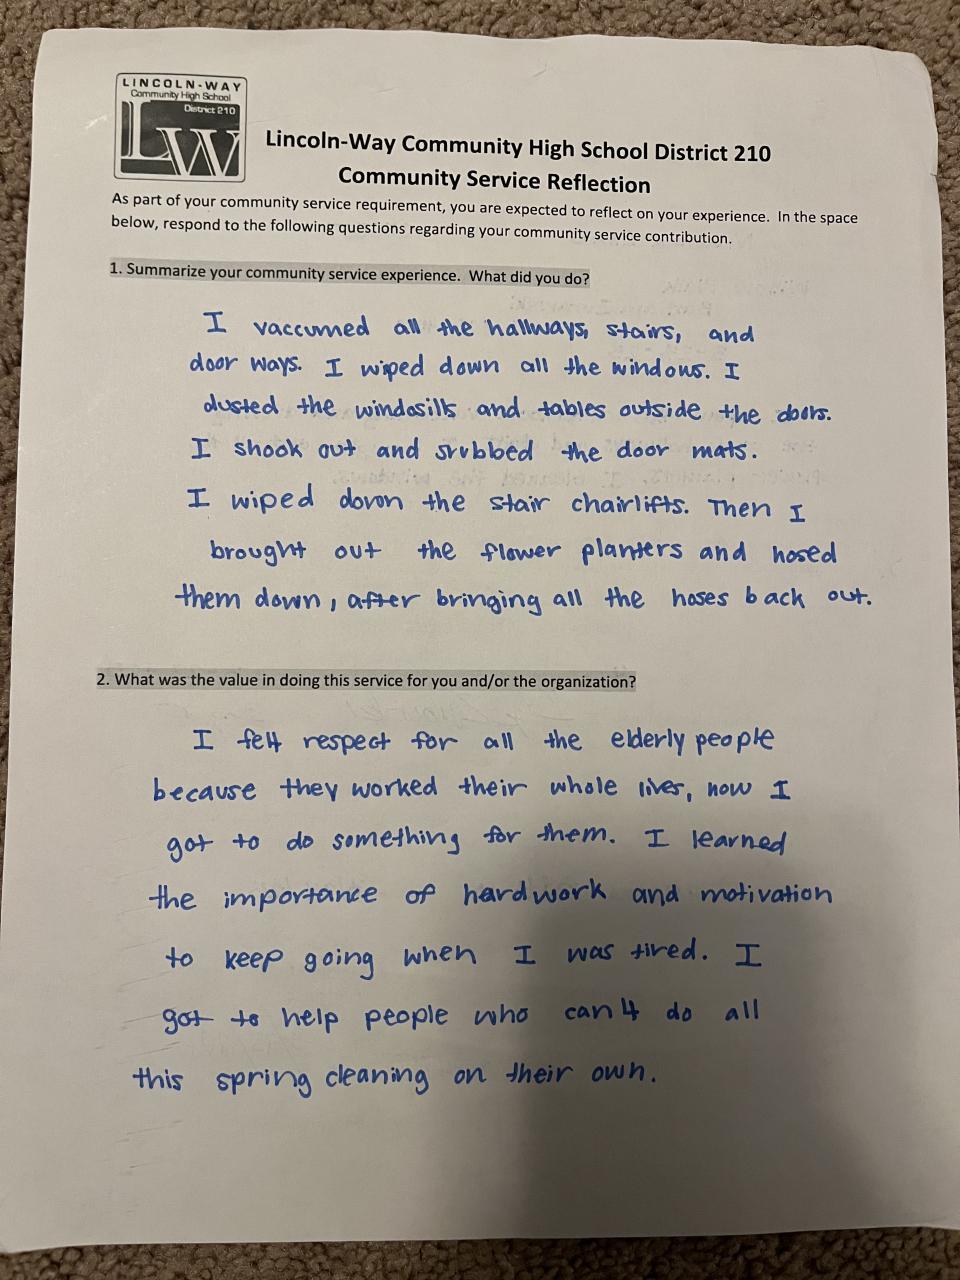 LINCOLN-WAY
Community High School
District 210
LW
Lincoln-Way Community High School District 210
Community Service Reflection
As part of your community service requirement, you are expected to reflect on your experience. In the space
below, respond to the following questions regarding your community service contribution.
1. Summarize your community service experience. What did you do?
I vaccumed all the hallways, stairs, and
door ways. I wiped down all the windows. I
dusted the windosills and tables outside the doors.
I shook out and srubbed the door mats.
I wiped down the stair chairlifts. Then I
brought out the flower planters and hosed
them down, after bringing all the hoses back out.
2. What was the value in doing this service for you and/or the organization?
I felt respect for all the elderly people
because they worked their whole lives, now I
got to do something for them. I learned
the importance of hardwork and motivation
to keep going when I was tired. I
got to help people who can't do all
this spring cleaning on their own.